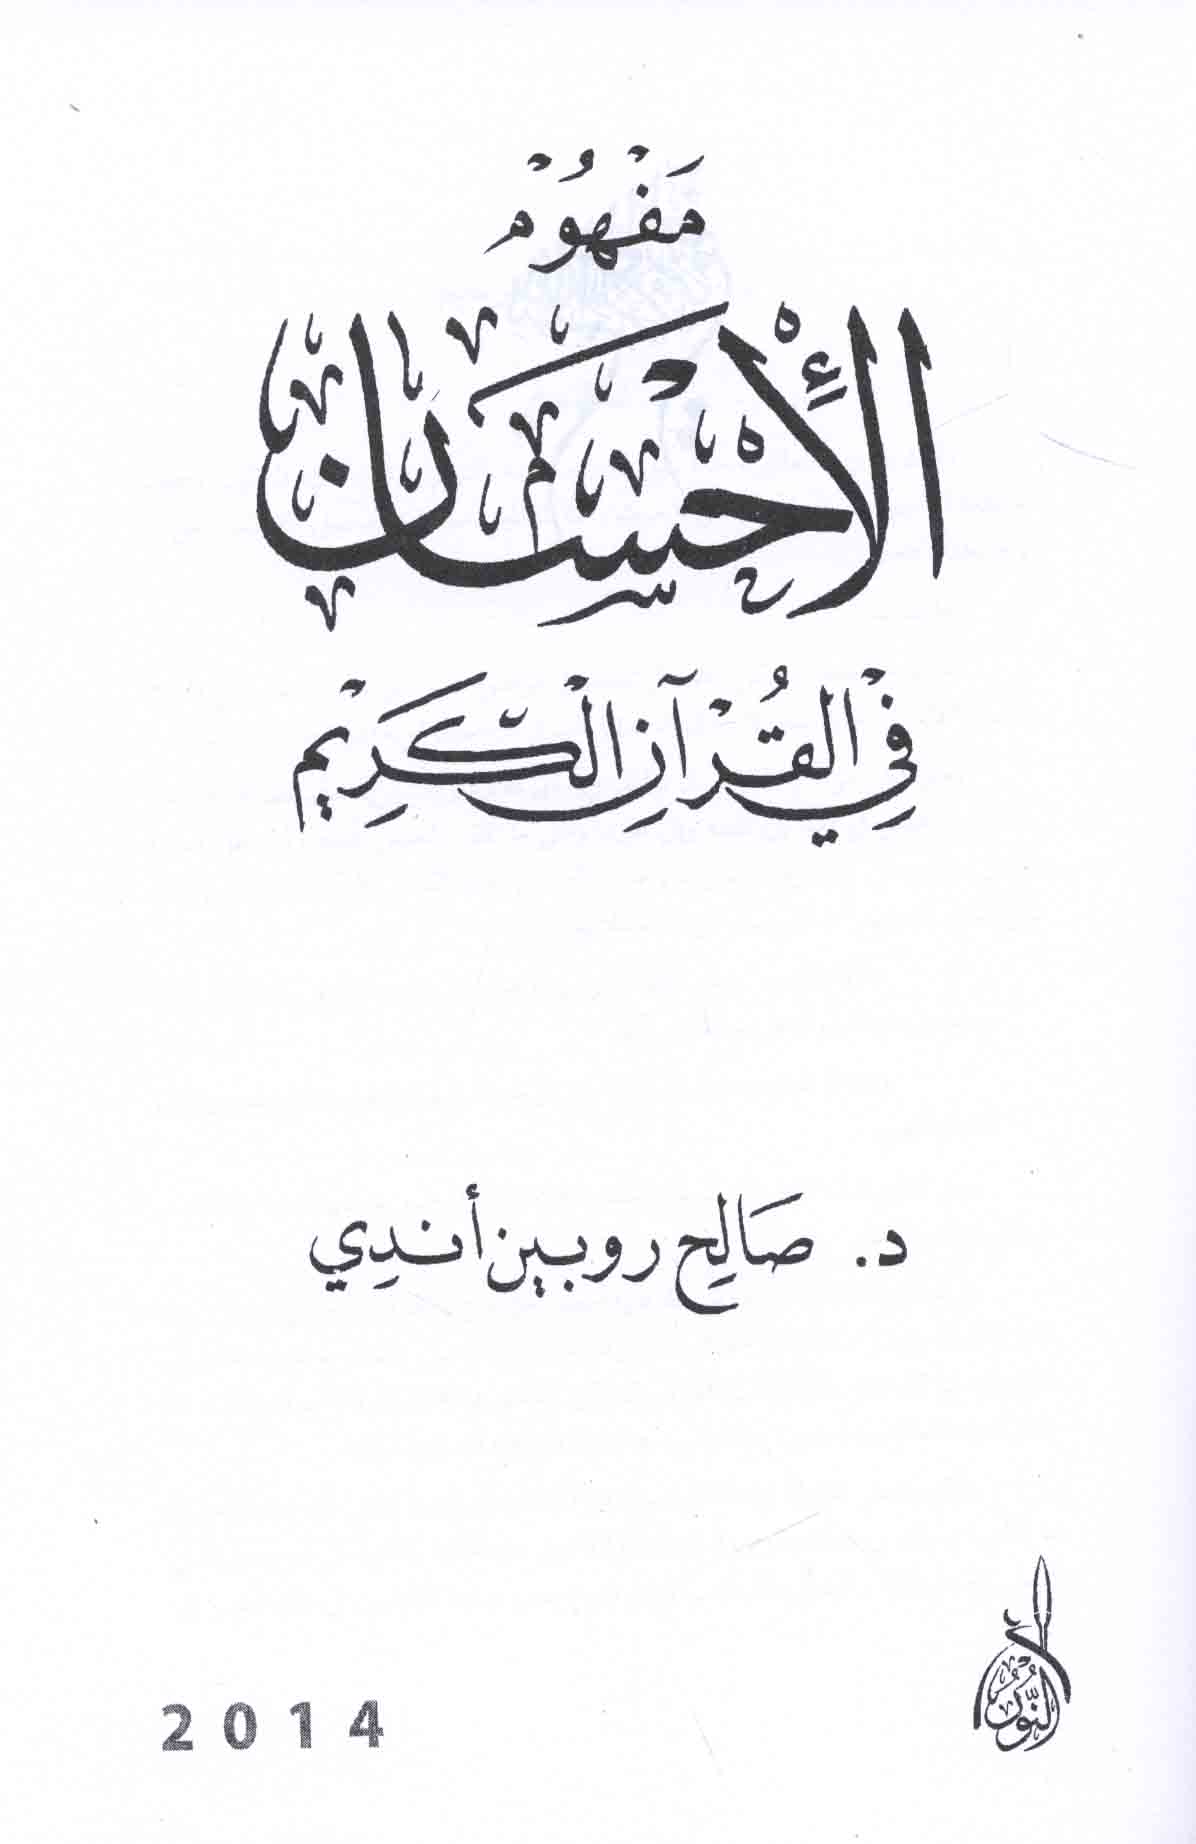 مَفْهُوْمُ
الْإِحْسَان
فِي الْقُرْآنِ الْكَرِيْم
د. صَالِح روبين أندِي
النُّوْر
2014